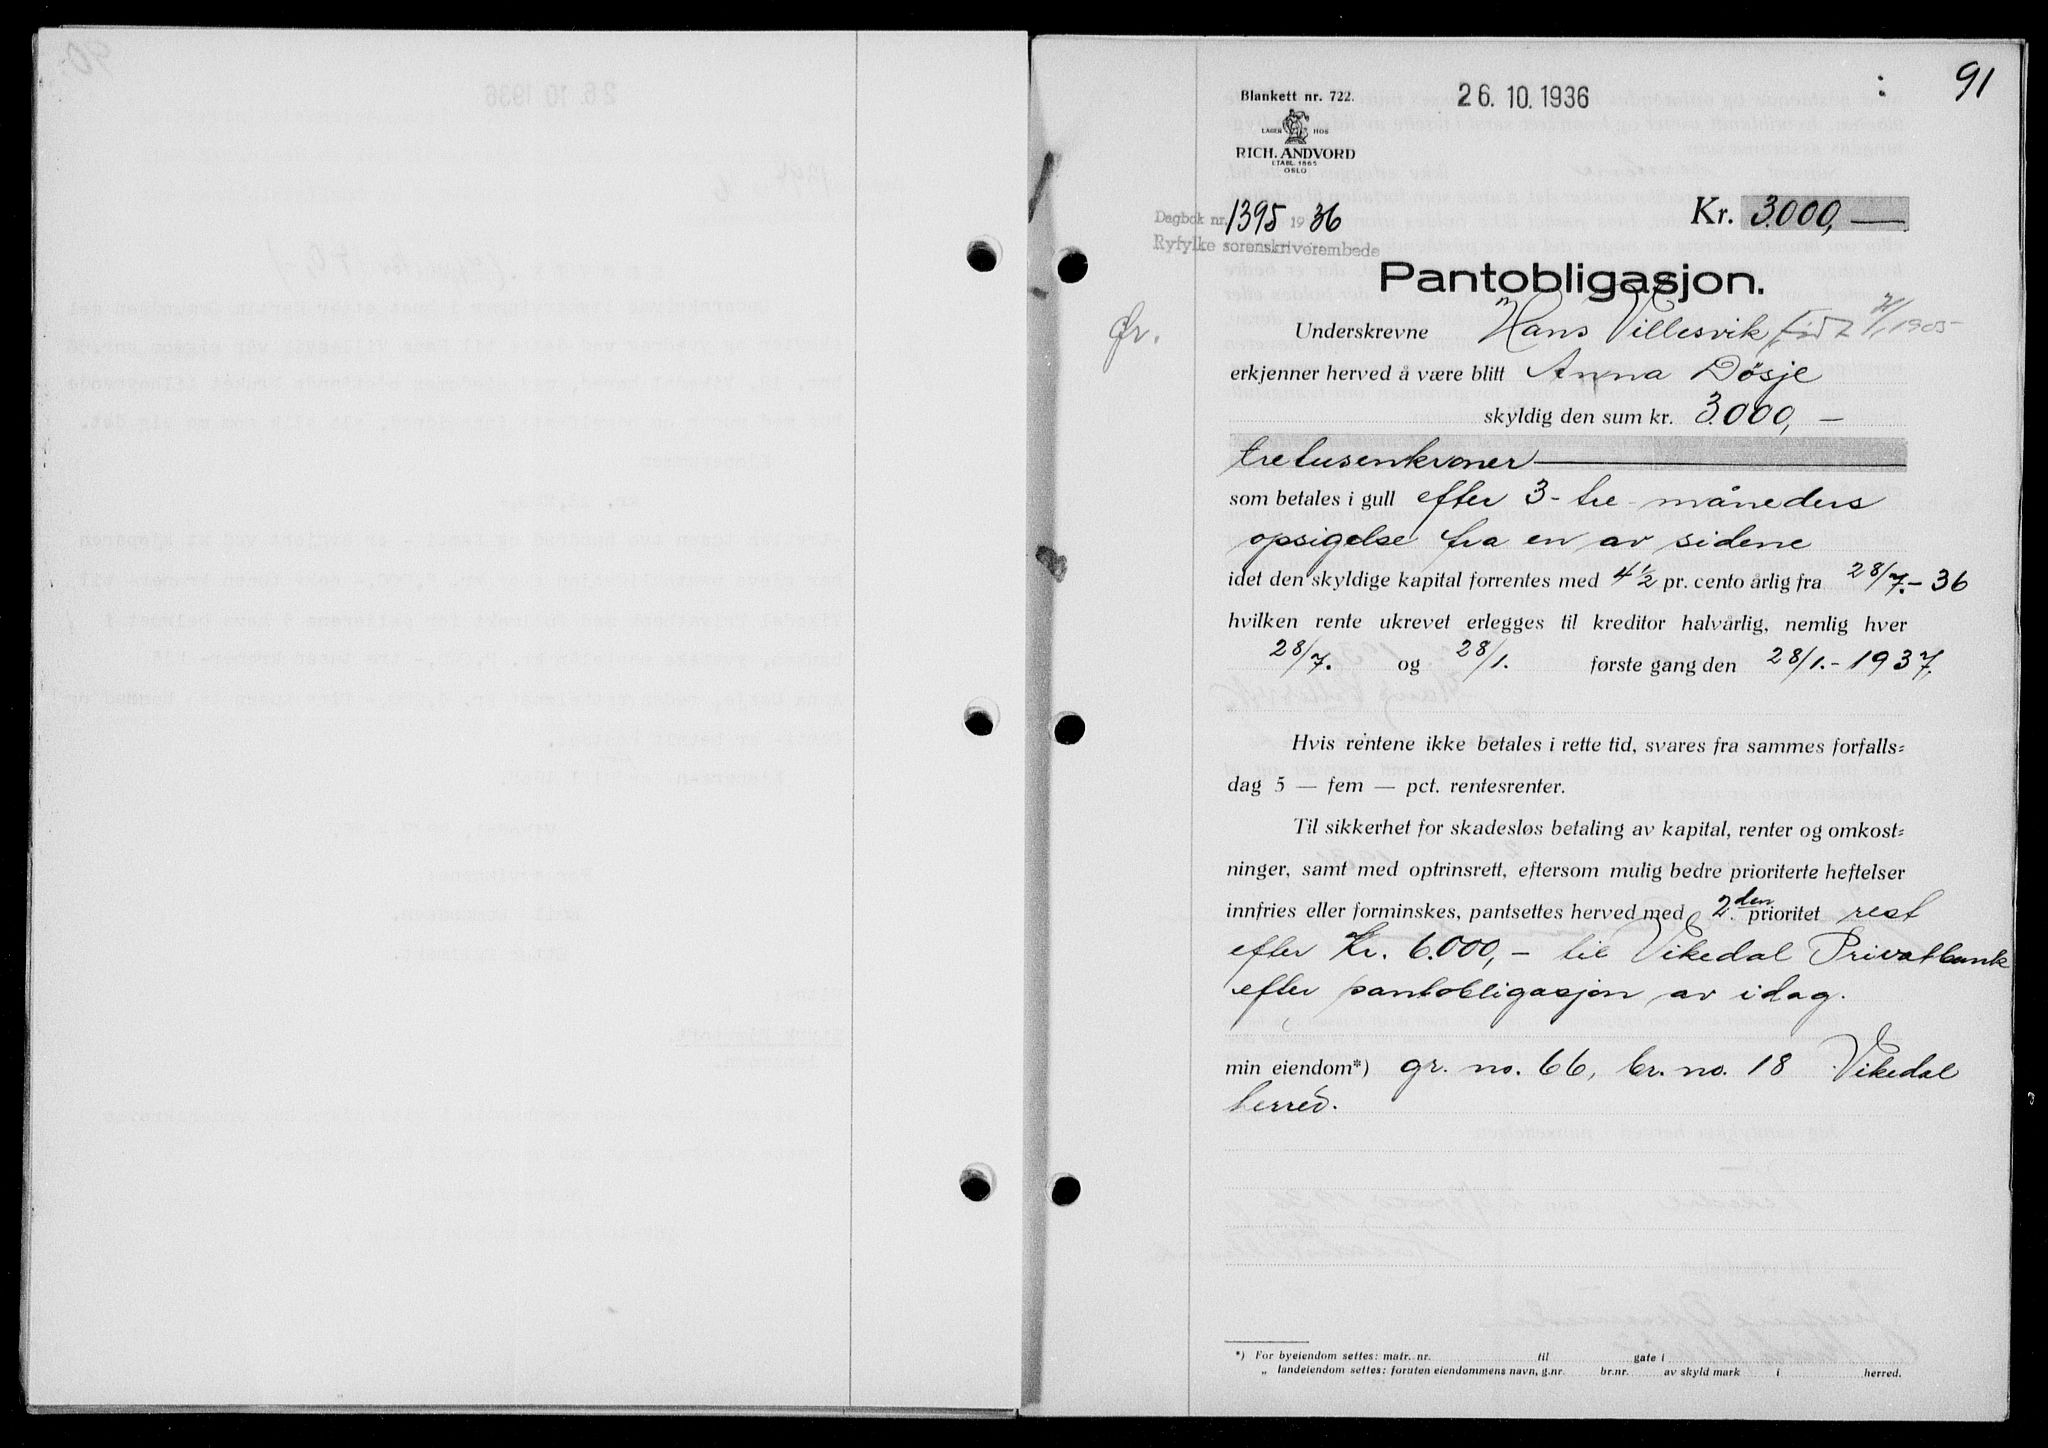 91
Blankett nr. 722.
26.10.1936
LAGER HOS
RICH. ANDVORD
ETABL. 1865
OSLO
Kr. 3.000,—
Dagbok nr. 1395 1936
Ryfylke sorenskriverembede
Pantobligasjon.
Ør.
Underskrevne Hans Villesvik, född 4/1 1905
erkjenner herved å være blitt Anna Døsje
skyldig den sum kr. 3.000,—
tretusenkroner
som betales i gull efter 3 - tre måneders
opsigelse fra en av sidene
idet den skyldige kapital forrentes med 4½ pr. cento årlig fra 28/7.-36
hvilken rente ukrevet erlegges til kreditor halvårlig, nemlig hver
28/7. og 28/1. første gang den 28/1.-1937,
Hvis rentene ikke betales i rette tid, svares fra sammes forfalls=
dag 5 — fem — pct. rentesrenter.
Til sikkerhet for skadesløs betaling av kapital, renter og omkost=
ninger, samt med optrinsrett, eftersom mulig bedre prioriterte heftelser
innfries eller forminskes, pantsettes herved med 2.den prioritet rest
efter Kr. 6.000,- til Vikedal Privatbank
efter pantobligasjon av idag.
min eiendom*) gr. no. 66, br. no. 18 Vikedal
herred.
*) For byeiendom settes: matr. nr. til gate i
„ landeiendom settes: foruten eiendommens navn, g.nr. br.nr. av skyld mark i herred.